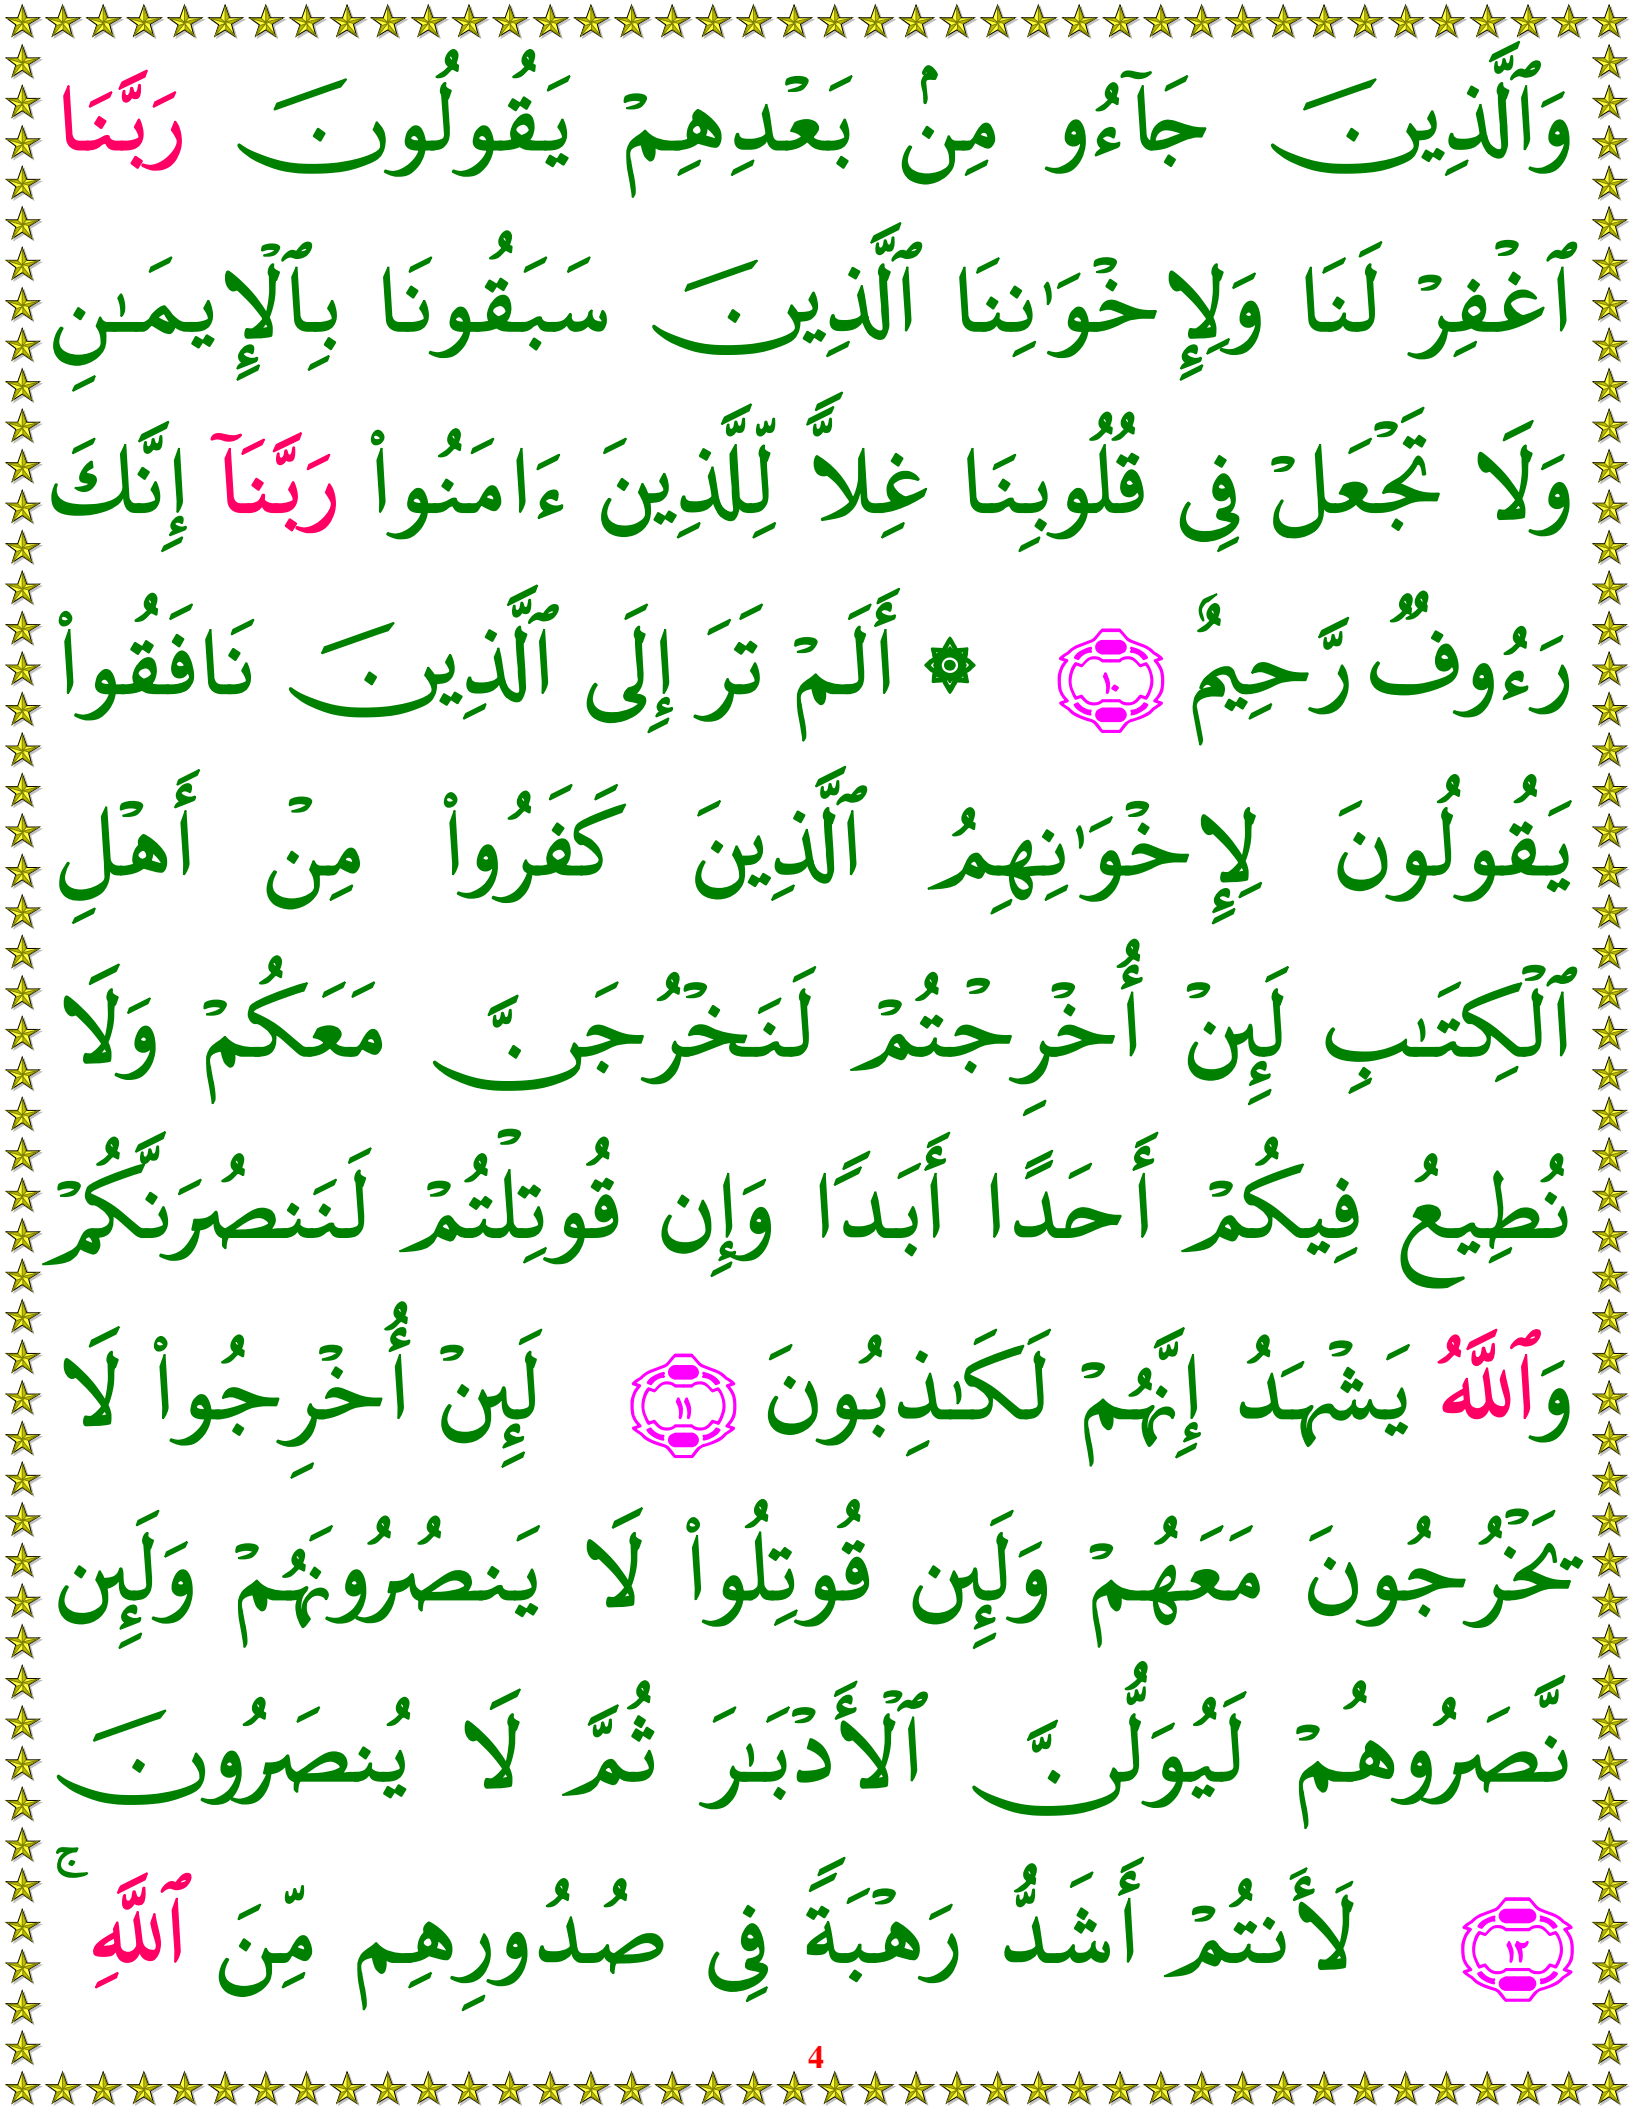 وَٱلَّذِينَ جَآءُو مِنۢ بَعْدِهِمْ يَقُولُونَ رَبَّنَا
ٱغْفِرْ لَنَا وَلِإِخْوَٰنِنَا ٱلَّذِينَ سَبَقُونَا بِٱلْإِيمَـٰنِ
وَلَا تَجْعَلْ فِى قُلُوبِنَا غِلاًّ لِّلَّذِينَ ءَامَنُوا۟ رَبَّنَآ إِنَّكَ
رَءُوفٌ رَّحِيمٌ ١٠ ۞ أَلَمْ تَرَ إِلَى ٱلَّذِينَ نَافَقُوا۟
يَقُولُونَ لِإِخْوَٰنِهِمُ ٱلَّذِينَ كَفَرُوا۟ مِنْ أَهْلِ
ٱلْكِتَـٰبِ لَئِنْ أُخْرِجْتُمْ لَنَخْرُجَنَّ مَعَكُمْ وَلَا
نُطِيعُ فِيكُمْ أَحَدًا أَبَدًا وَإِن قُوتِلْتُمْ لَنَنصُرَنَّكُمْ
وَٱللَّهُ يَشْهَدُ إِنَّهُمْ لَكَـٰذِبُونَ ١١ لَئِنْ أُخْرِجُوا۟ لَا
يَخْرُجُونَ مَعَهُمْ وَلَئِن قُوتِلُوا۟ لَا يَنصُرُونَهُمْ وَلَئِن
نَّصَرُوهُمْ لَيُوَلُّنَّ ٱلْأَدْبَـٰرَ ثُمَّ لَا يُنصَرُونَ
١٢ لَأَنتُمْ أَشَدُّ رَهْبَةً فِى صُدُورِهِم مِّنَ ٱللَّهِ ۚ
4